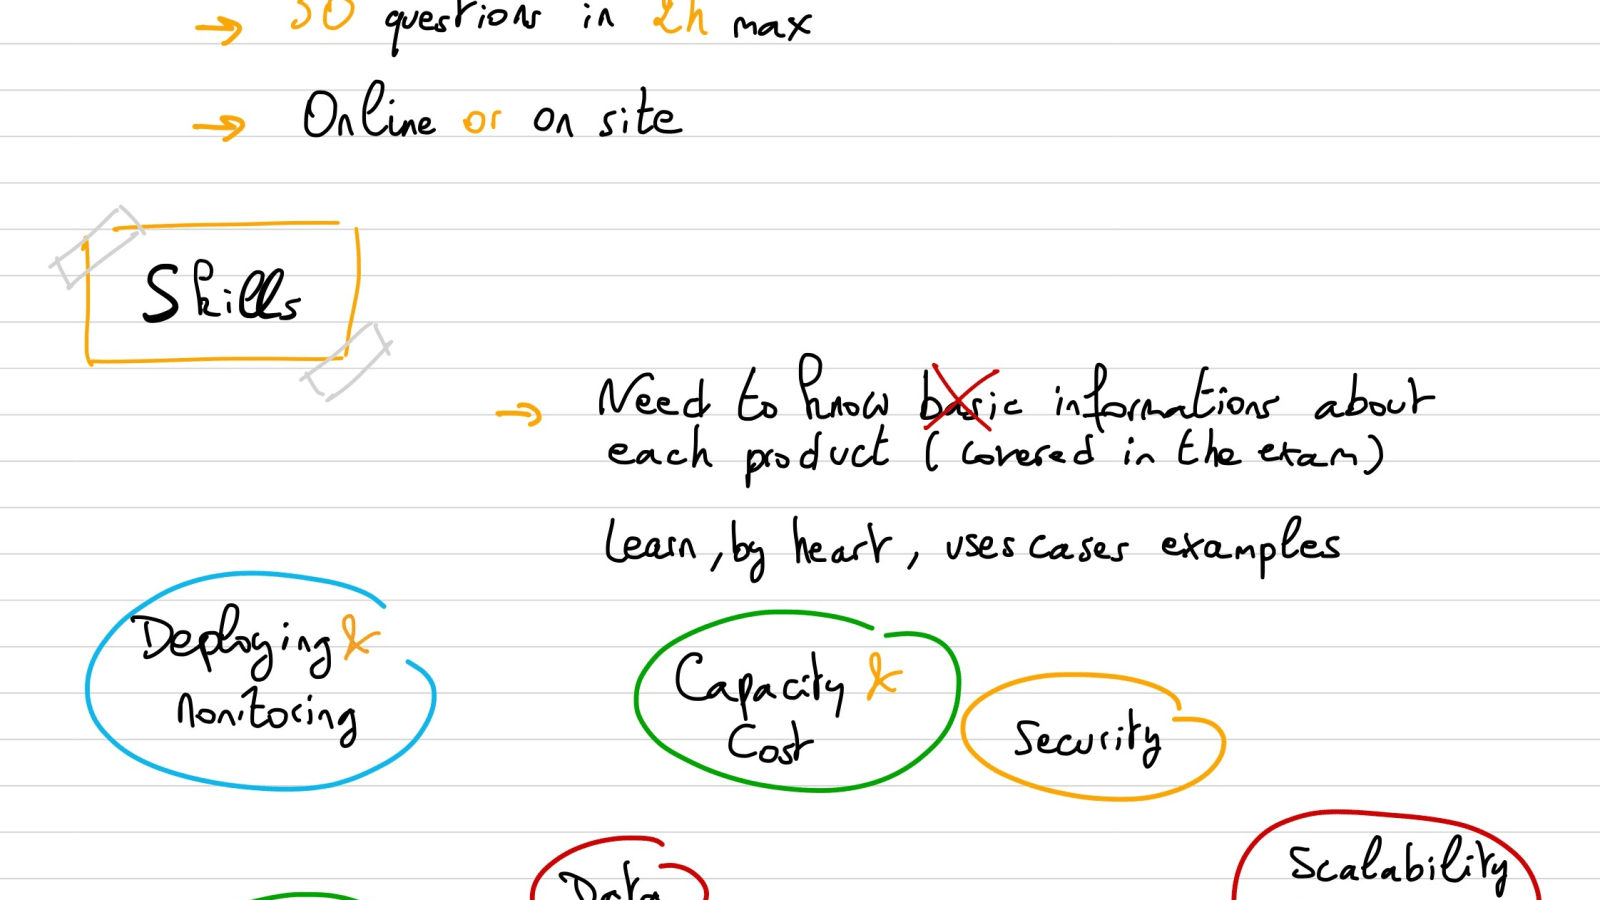 questions in 2h max
Online or on site
Skills
Need to know basic informations about
each product (covered in the exam)
Learn, by heart, uses cases examples
Deploying &
Monitoring
Capacity &
Cost
Security
Scalability
Data